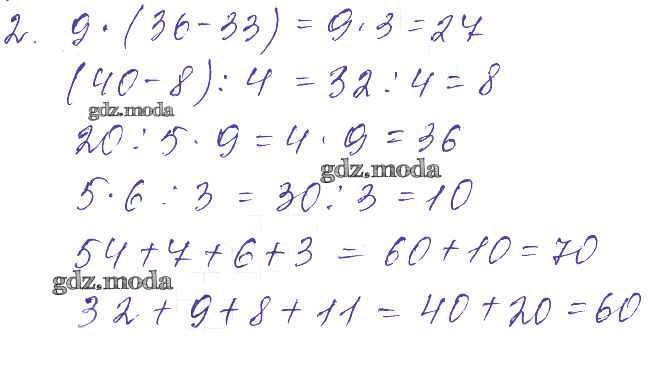 2. 9 · (36 - 33) = 9 · 3 = 27
(40 - 8) : 4 = 32 : 4 = 8
gdz.moda
20 : 5 · 9 = 4 · 9 = 36
gdz.moda
5 · 6 : 3 = 30 : 3 = 10
54 + 7 + 6 + 3 = 60 + 10 = 70
gdz.moda
32 + 9 + 8 + 11 = 40 + 20 = 60